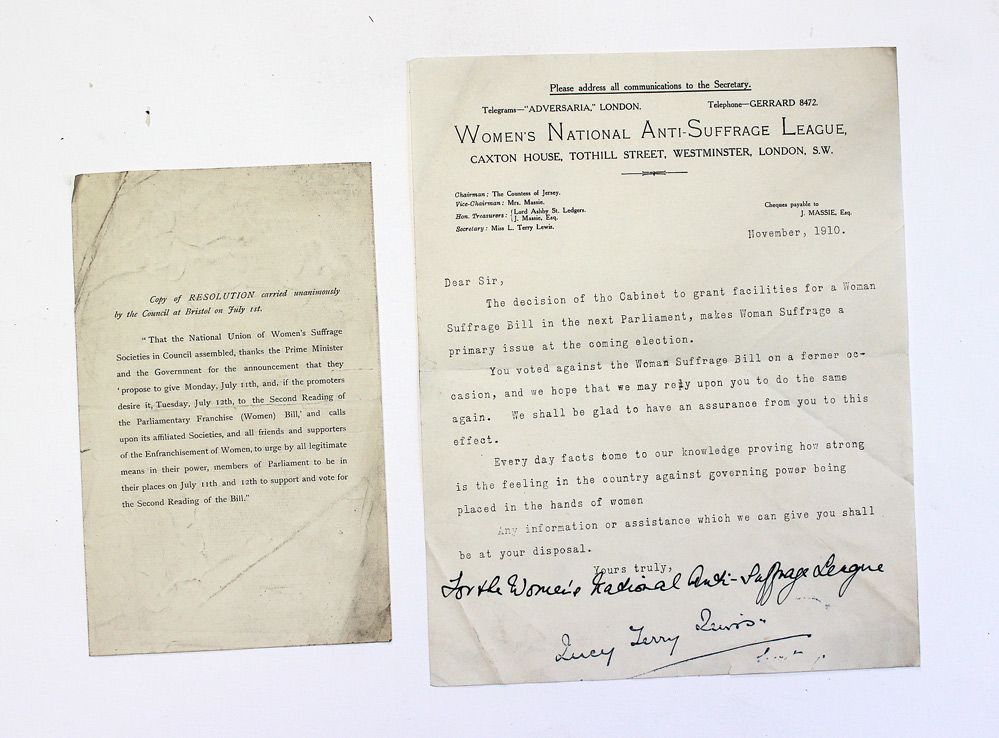 Copy of RESOLUTION carried unanimously
by the Council at Bristol on July 1st.
"That the National Union of Women's Suffrage
Societies in Council assembled, thanks the Prime Minister
and the Government for the announcement that they
'propose to give Monday, July 11th, and, if the promoters
desire it, Tuesday, July 12th, to the Second Reading of
the Parliamentary Franchise (Women) Bill,' and calls
upon its affiliated Societies, and all friends and supporters
of the Enfranchisement of Women, to urge by all legitimate
means in their power, members of Parliament to be in
their places on July 11th and 12th to support and vote for
the Second Reading of the Bill."
Please address all communications to the Secretary.
Telegrams—"ADVERSARIA," LONDON. Telephone—GERRARD 8472.
WOMEN'S NATIONAL ANTI-SUFFRAGE LEAGUE,
CAXTON HOUSE, TOTHILL STREET, WESTMINSTER, LONDON, S.W.
Chairman: The Countess of Jersey.
Vice-Chairman: Mrs. Massie.
Hon. Treasurers: {Lord Ashby St. Ledgers.
J. Massie, Esq.
Secretary: Miss L. Terry Lewis.
Cheques payable to
J. MASSIE, Esq.
November, 1910.
Dear Sir,
The decision of tho Cabinet to grant facilities for a Woman
Suffrage Bill in the next Parliament, makes Woman Suffrage a
primary issue at the coming election.
You voted against the Woman Suffrage Bill on a former oc-
casion, and we hope that we may rely upon you to do the same
again. We shall be glad to have an assurance from you to this
effect.
Every day facts come to our knowledge proving how strong
is the feeling in the country against governing power being
placed in the hands of women
Any information or assistance which we can give you shall
be at your disposal.
Yours truly,
For the Women's National Anti-Suffrage League
Lucy Terry Lewis